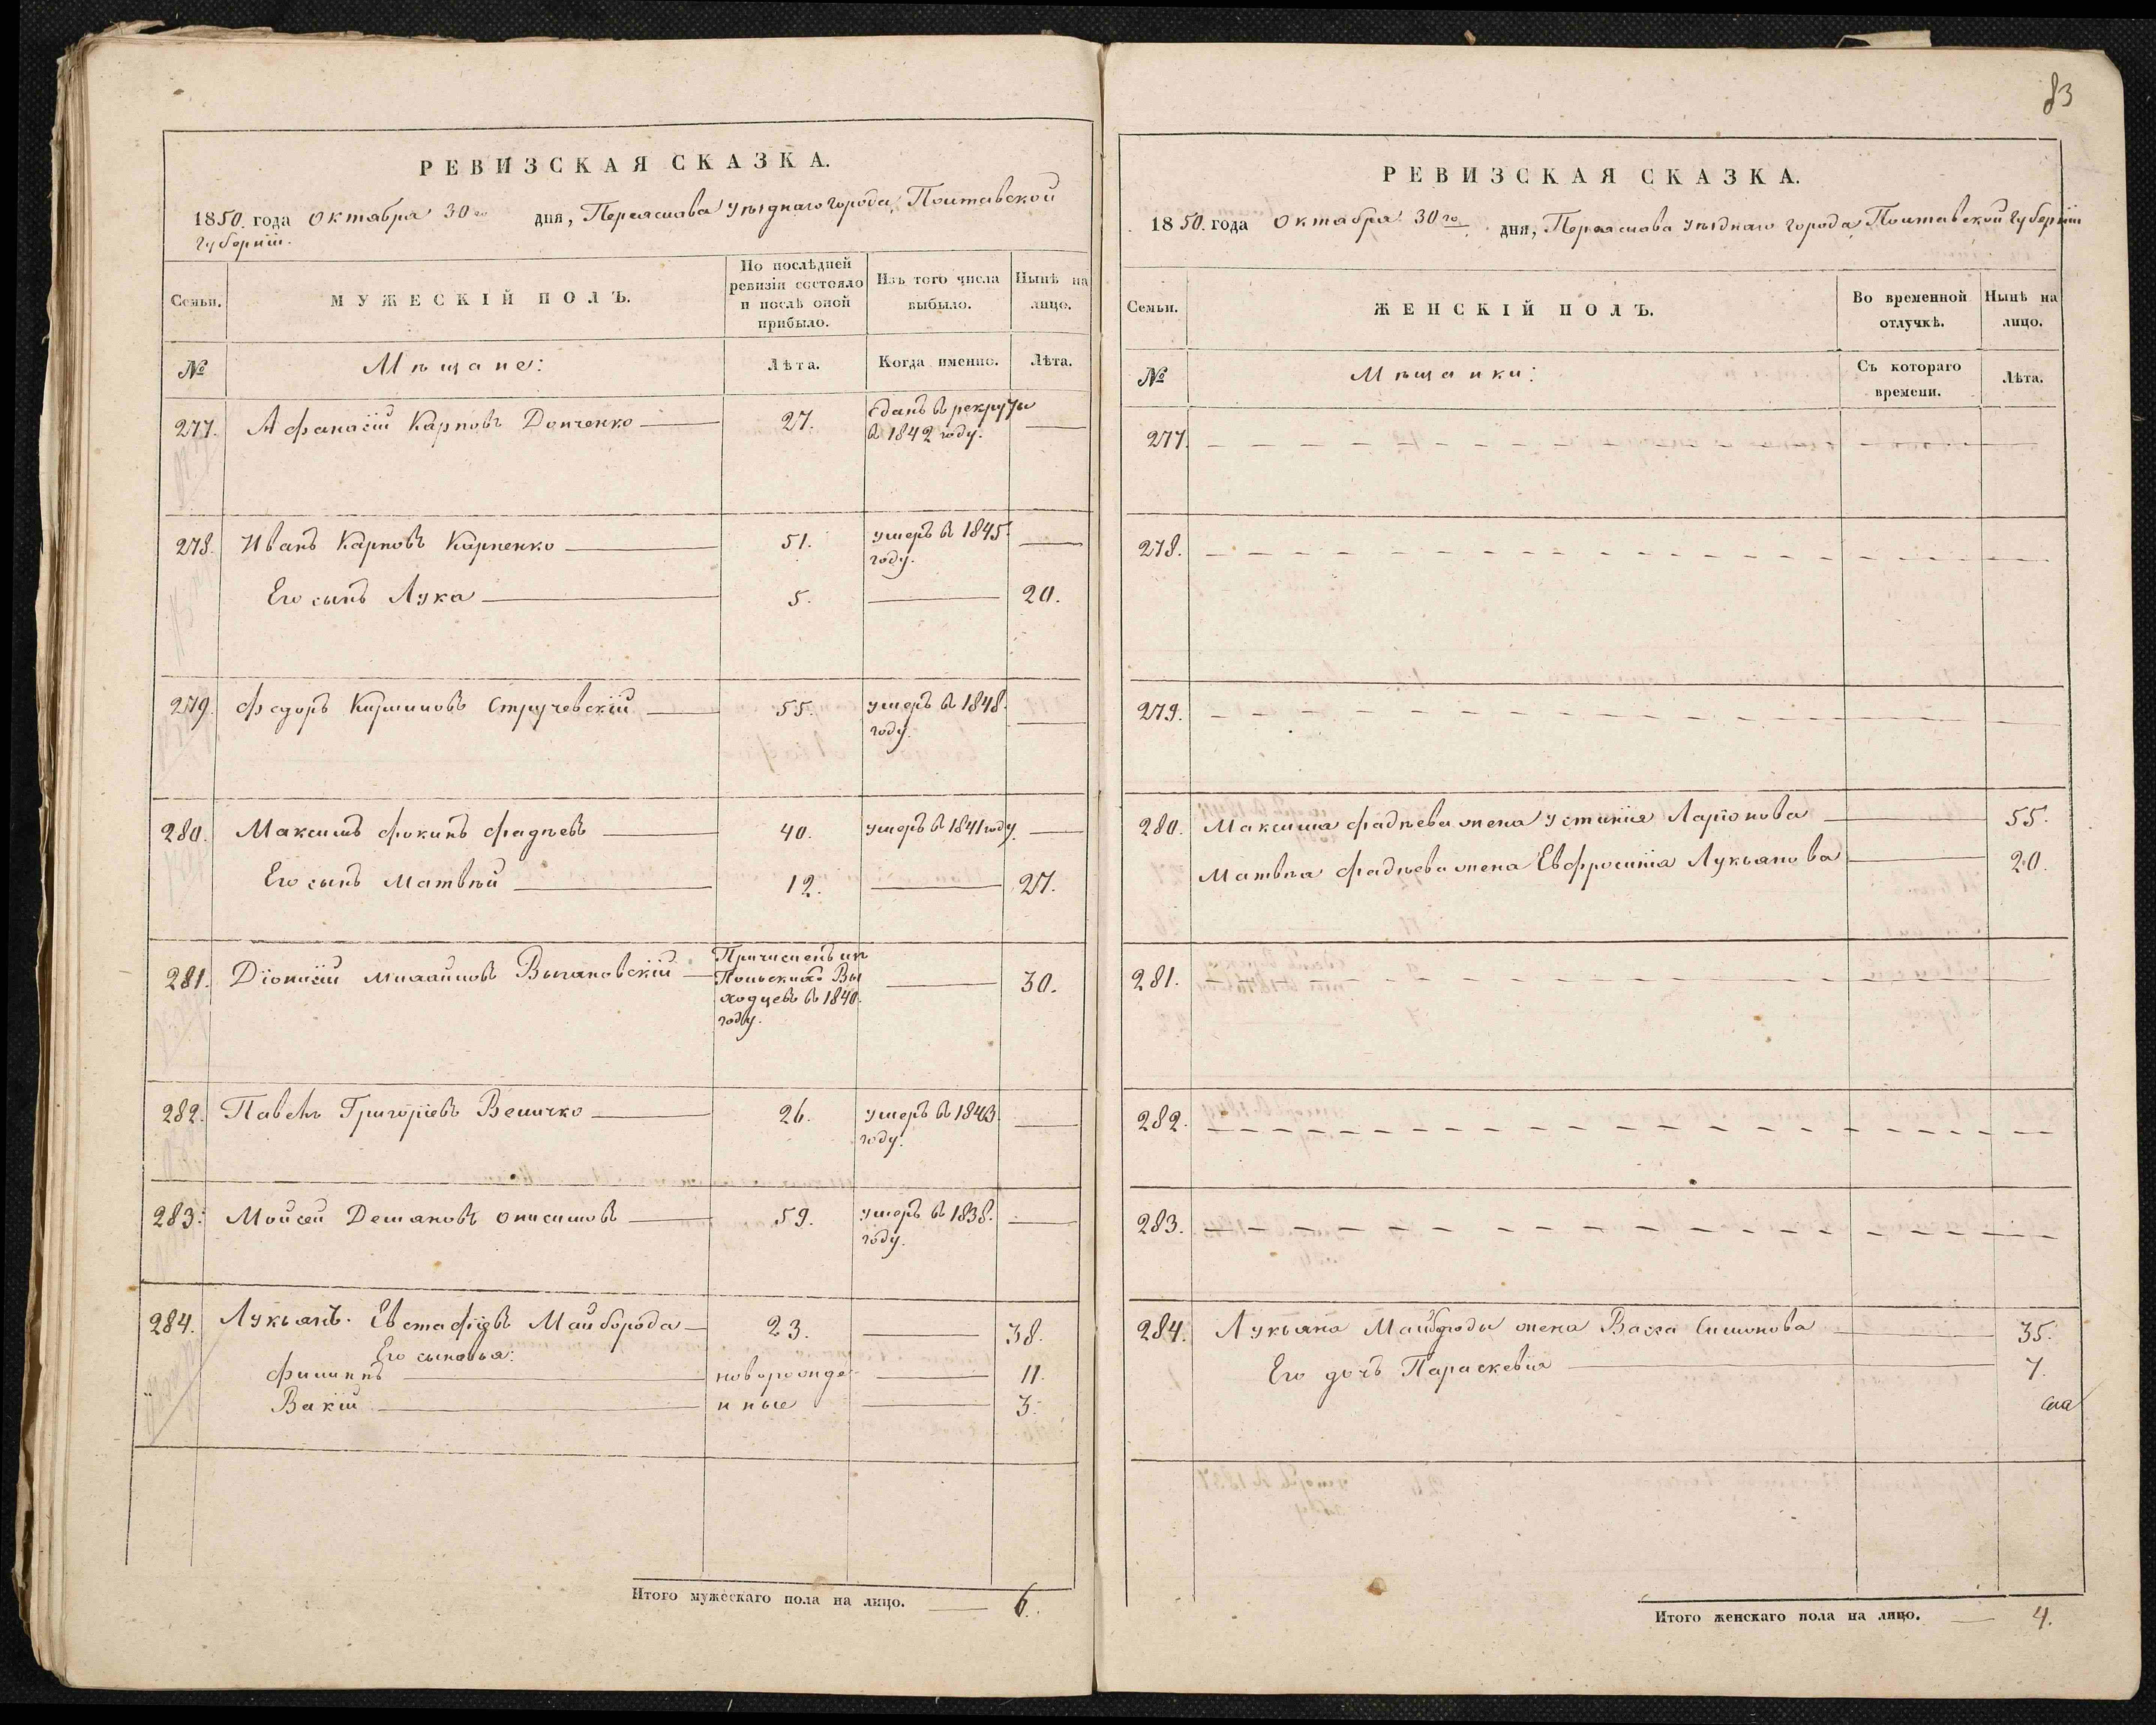 83
РЕВИЗСКАЯ СКАЗКА.
1850. года Октября 30го дня, Переяслава уѣзднаго города, Полтавской
губерніи.
Семьи. МУЖЕСКІЙ ПОЛЪ. По послѣдней ревизіи состояло и послѣ оной прибыло. Изъ того числа выбыло. Нынѣ на лицо.
№ Мѣщане: Лѣта. Когда именно. Лѣта.
277. Афанасій Карповъ Донченко 27. Сданъ в рекруты
в 1842 году.
278. Иванъ Карповъ Карпенко 51. умеръ в 1845.
году.
Его сынъ Лука 5. 20.
279. Федоръ Стручевскій 55. умеръ в 1848.
году.
280. Максимъ Фокинъ Фадѣевъ 40. умеръ в 1841 году.
Его сынъ Матвѣй 12. 27.
281. Діонисій Михайловъ Причисленъ изъ
Польскихъ Вы
ходцевъ в 1840. 30.
году.
282. Павелъ Григоріевъ Величко 26. умеръ в 1843.
году.
283. Мойсей Демяновъ Онисимовъ 59. умеръ в 1838.
году.
284. Лукьянъ Евстафіевъ Майборода 23. 38.
Его сыновья:
Филиппъ новорожде 11.
Вакій нные 3.
Итого мужескаго пола на лицо. 6.
РЕВИЗСКАЯ СКАЗКА.
1850. года Октября 30го дня, Переяслава уѣзднаго города, Полтавской губерніи
Семьи. ЖЕНСКІЙ ПОЛЪ. Во временной отлучкѣ. Нынѣ на лицо.
№ Мѣщанки: Съ котораго времени. Лѣта.
277.
278.
279.
280. Максима Фадѣева жена Устинія Ларіонова 55.
Матвѣя Фадѣева жена Евфросинія Лукьянова 20.
281.
282.
283.
284. Лукьяна Майбороды жена Васса Симонова 35.
Его дочь Параскевія 7.
Итого женскаго пола на лицо. 4.